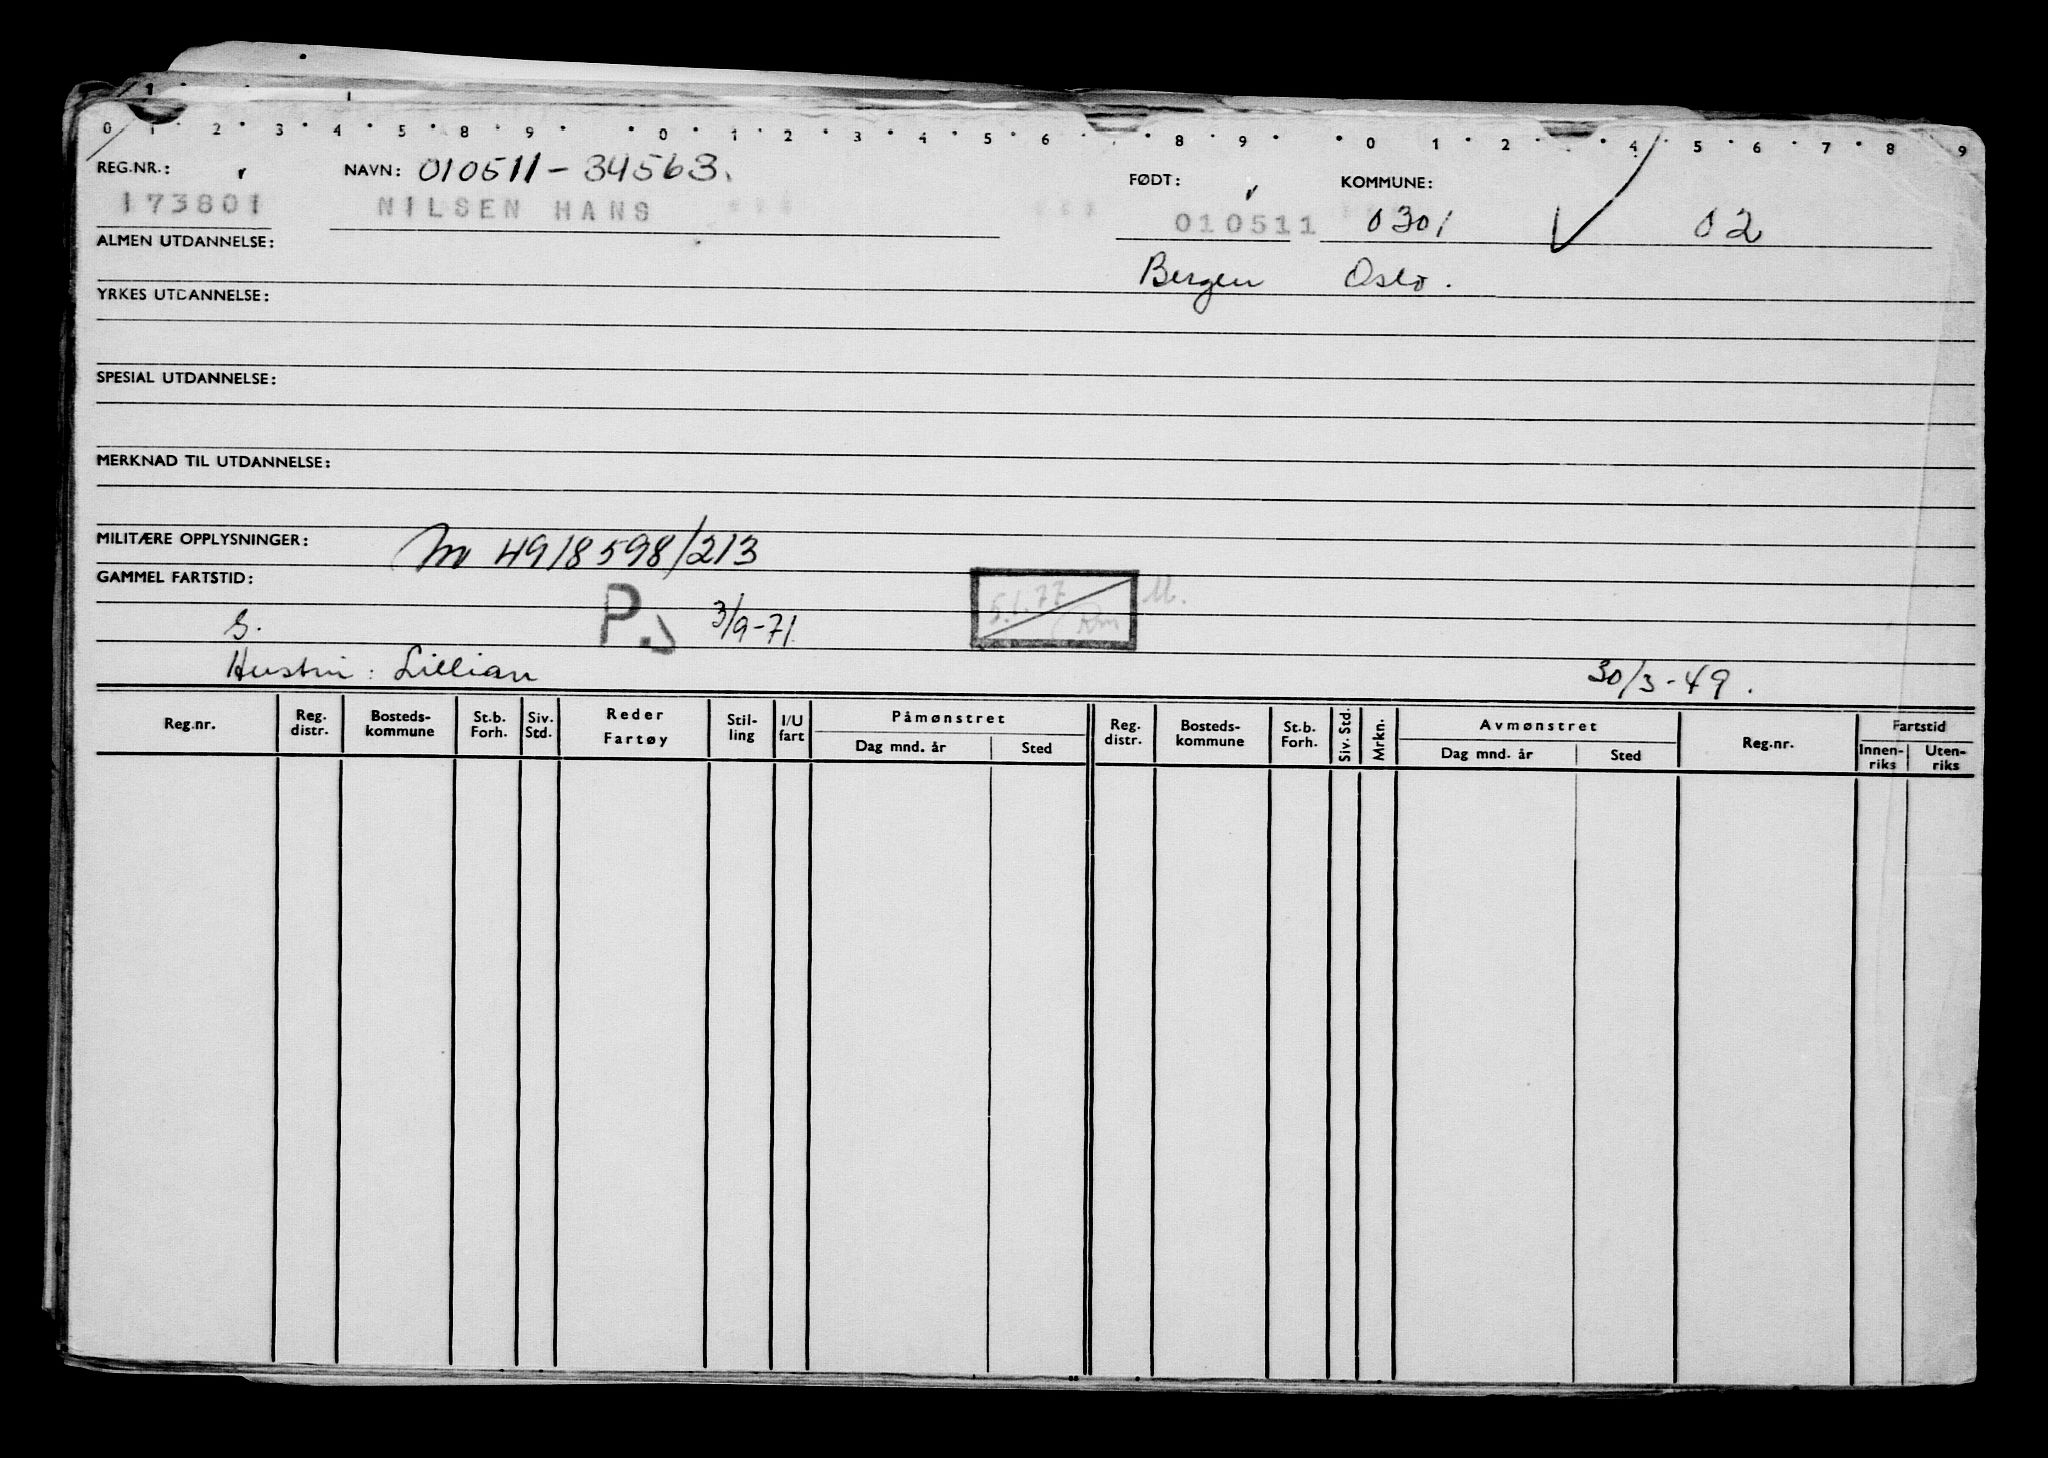 0 1 2 3 4 5 8 9 0 1 2 3 4 5 6 8 9 0 1 2 4 5 6 7 8 9
REG.NR.: NAVN: 010511-34563. FØDT: KOMMUNE:
173801 NILSEN HANS 010511 0301 02
ALMEN UTDANNELSE: Bergen Oslo.
YRKES UTDANNELSE:
SPESIAL UTDANNELSE:
MERKNAD TIL UTDANNELSE:
MILITÆRE OPPLYSNINGER: M 4918598/213
GAMMEL FARTSTID: 5.1.77
G. P. 3/9-71
Hustru: Lillian 30/3-49.
Reg.nr. Reg. distr. Bosteds-kommune St.b. Forh. Siv. Std. Reder Fartøy Stil-ling I/U fart Påmønstret Dag mnd. år Sted Reg. distr. Bosteds-kommune St.b. Forh. Siv. Std. Mrkn. Avmønstret Dag mnd. år Sted Reg.nr. Fartstid Innen-riks Uten-riks